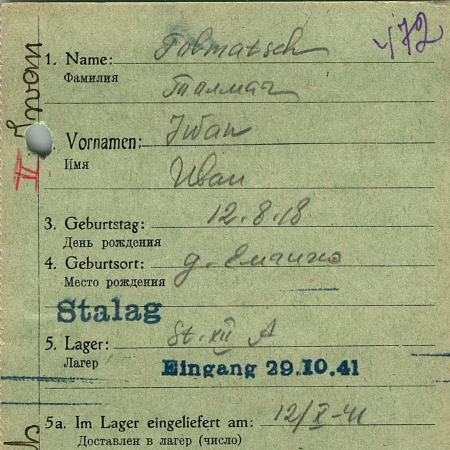 472
1. Name: Tolmatsch
Фамилия
Толмач
Vornamen: Iwan
Имя
Иван
V
3. Geburtstag: 12.8.18
День рождения
4. Geburtsort: д.
Место рождения
Stalag
5. Lager: St. XII A
Лагер
Eingang 29.10.41
5a. Im Lager eingeliefert am: 12/X-41
Доставлен в лагер (число)